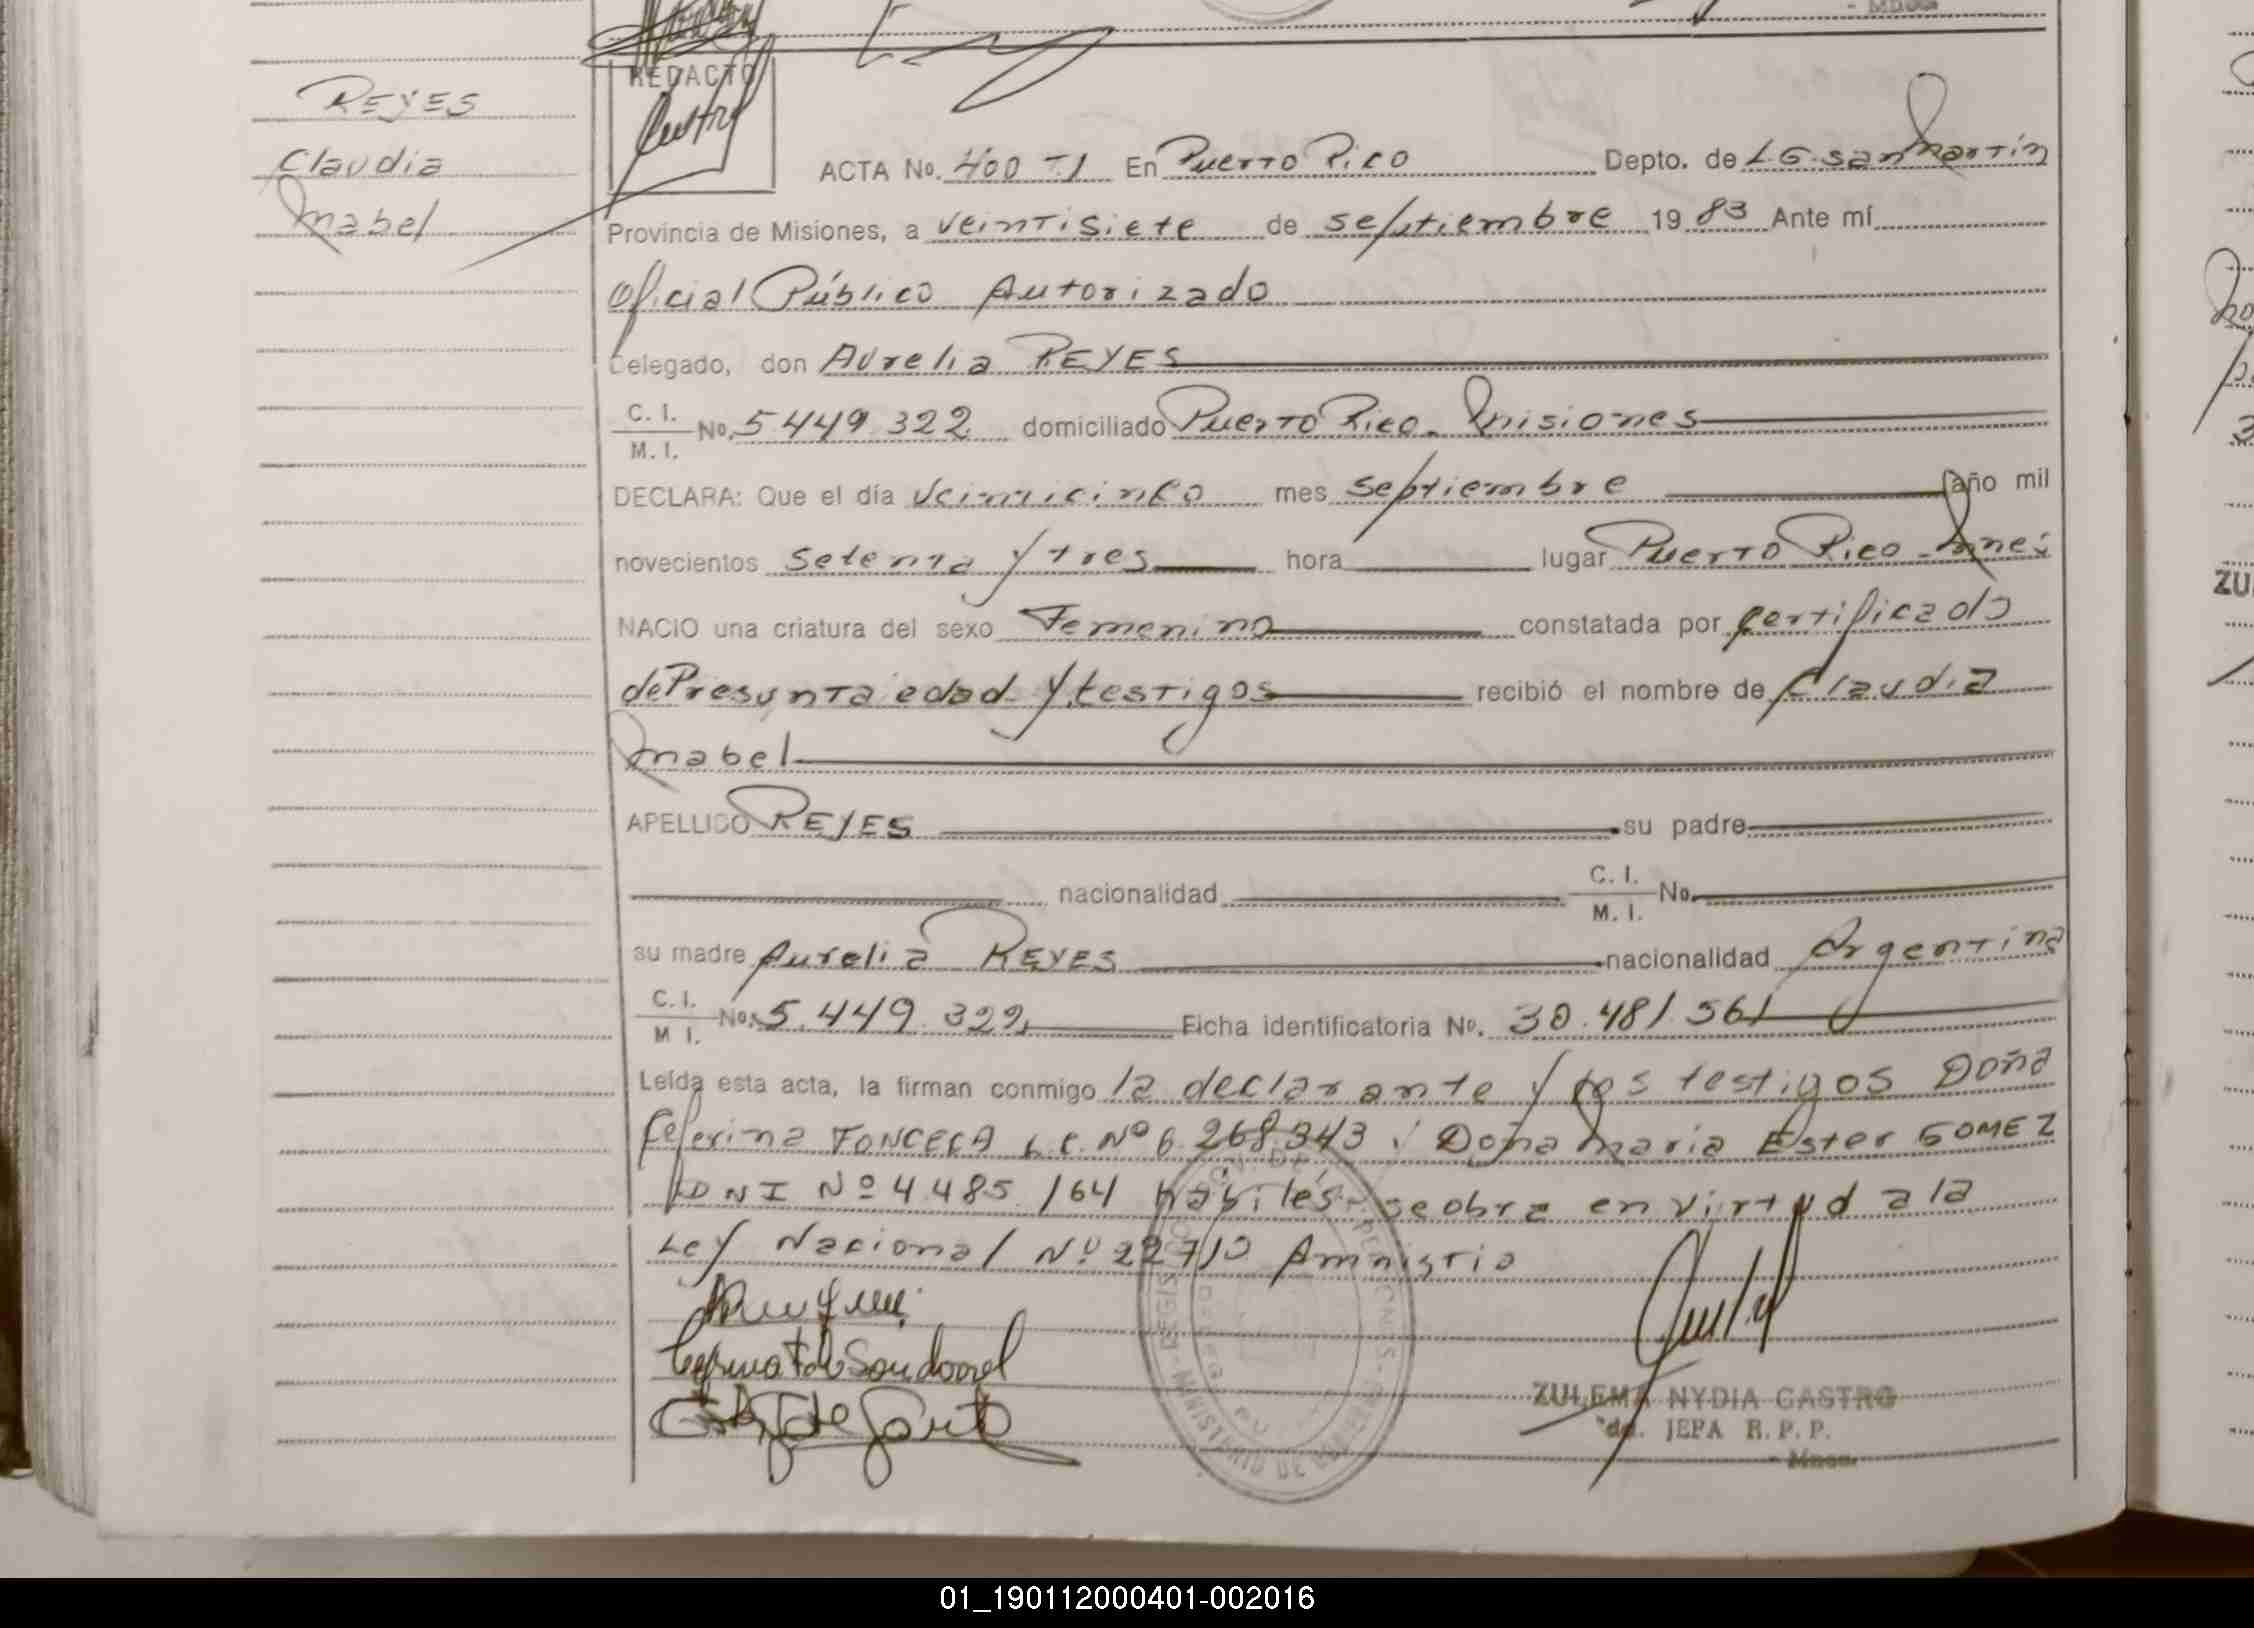 - Mnes.
REDACTO
REYES
Claudia
Mabel
ACTA No. 400 T.I En Puerto Rico Depto. de L.G. San Martín
Provincia de Misiones, a veintisiete de septiembre 19 83 Ante mí
Oficial Público Autorizado
Delegado, don Aurelia REYES
C. I.
M. I. No. 5.449.322 domiciliado Puerto Rico - Misiones
DECLARA: Que el día veinticinco mes septiembre año mil
novecientos setenta y tres hora lugar Puerto Rico - Mnes
NACIO una criatura del sexo Femenino constatada por certificado
de Presunta edad y testigos recibió el nombre de Claudia
Mabel
APELLIDO REYES su padre
nacionalidad C. I.
M. I. No.
su madre Aurelia REYES nacionalidad Argentina
C. I.
M I. No. 5.449.322 Ficha identificatoria No. 30.481.561
Leída esta acta, la firman conmigo la declarante y los testigos Doña
Ceferina FONCECA L.C. Nº 6.268.343 y Doña Maria Ester GOMEZ
DNI Nº 4.485.164 hábiles - se obra en virtud a la
Ley Nacional Nº 22710 Amnistia
ZULEMA NYDIA CASTRO
JEFA R. P. P.
- Mnes.
ZU
01_190112000401-002016